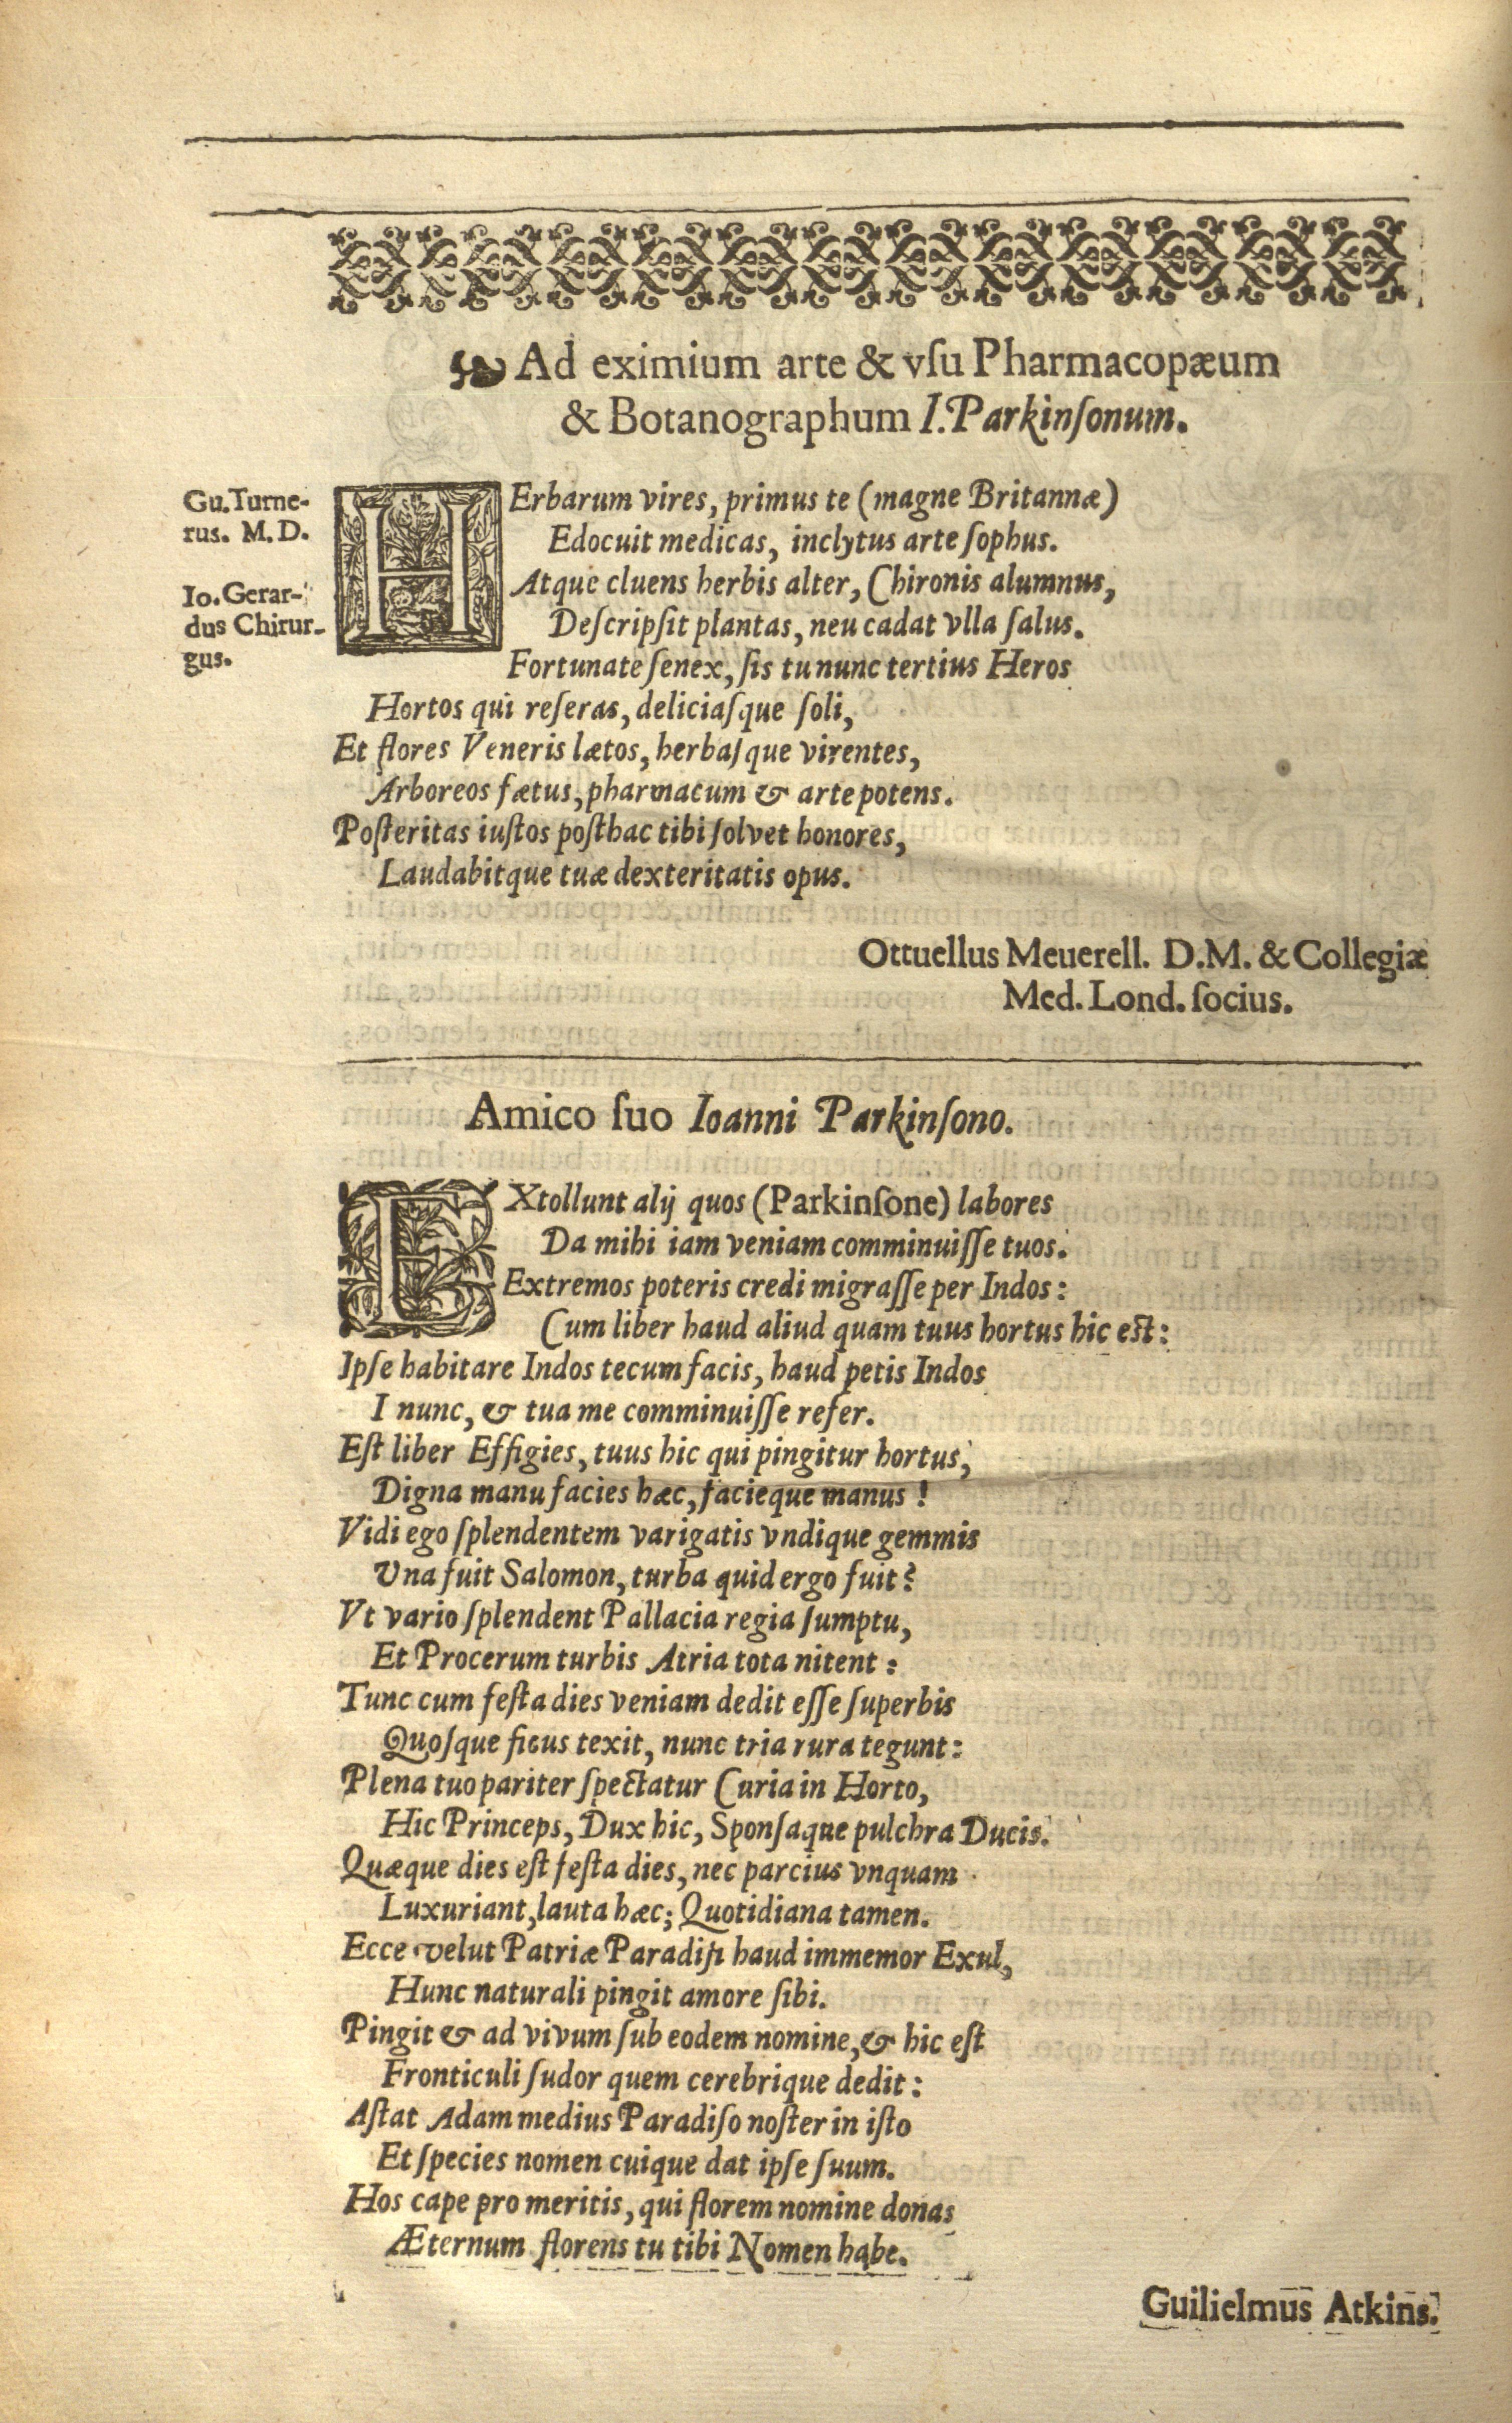 Ad eximium arte & vſu Pharmacopæum
& Botanographum I. Parkinſonum.
Gu. Turne-
rus. M. D.
Io. Gerar-
dus Chirur-
gus.
HErbarum vires, primus te (magne Britannæ)
Edocuit medicas, inclytus arte ſophus.
Atque cluens herbis alter, Chironis alumnus,
Deſcripſit plantas, neu cadat vlla ſalus.
Fortunate ſenex, ſis tu nunc tertius Heros
Hortos qui reſeras, deliciaſque ſoli,
Et flores Veneris lætos, herbaſque virentes,
Arboreos fætus, pharmacum & arte potens.
Poſteritas iuſtos poſthac tibi ſolvet honores,
Laudabitque tuæ dexteritatis opus.
Ottuellus Meuerell. D.M. & Collegiæ
Med. Lond. ſocius.
Amico ſuo Ioanni Parkinſono.
EXtollunt alij quos (Parkinſone) labores
Da mihi iam veniam comminuiſſe tuos.
Extremos poteris credi migraſſe per Indos:
Cum liber haud aliud quam tuus hortus hic est:
Ipſe habitare Indos tecum facis, haud petis Indos
I nunc, & tua me comminuiſſe refer.
Eſt liber Effigies, tuus hic qui pingitur hortus,
Digna manu facies hæc, facieque manus!
Vidi ego ſplendentem varigatis vndique gemmis
Una fuit Salomon, turba quid ergo fuit?
Vt vario ſplendent Pallacia regia ſumptu,
Et Procerum turbis Atria tota nitent:
Tunc cum feſta dies veniam dedit eſſe ſuperbis
Quoſque ficus texit, nunc tria rura tegunt:
Plena tuo pariter ſpectatur Curia in Horto,
Hic Princeps, Dux hic, Sponſaque pulchra Ducis.
Quæque dies eſt feſta dies, nec parcius vnquam
Luxuriant, lauta hæc; Quotidiana tamen.
Ecce velut Patriæ Paradiſi haud immemor Exul,
Hunc naturali pingit amore ſibi.
Pingit & ad vivum ſub eodem nomine, & hic eſt
Fronticuli ſudor quem cerebrique dedit:
Aſtat Adam medius Paradiſo noſter in iſto
Et ſpecies nomen cuique dat ipſe ſuum.
Hos cape pro meritis, qui florem nomine donas
Æternum florens tu tibi Nomen habe.
Guilielmus Atkins.